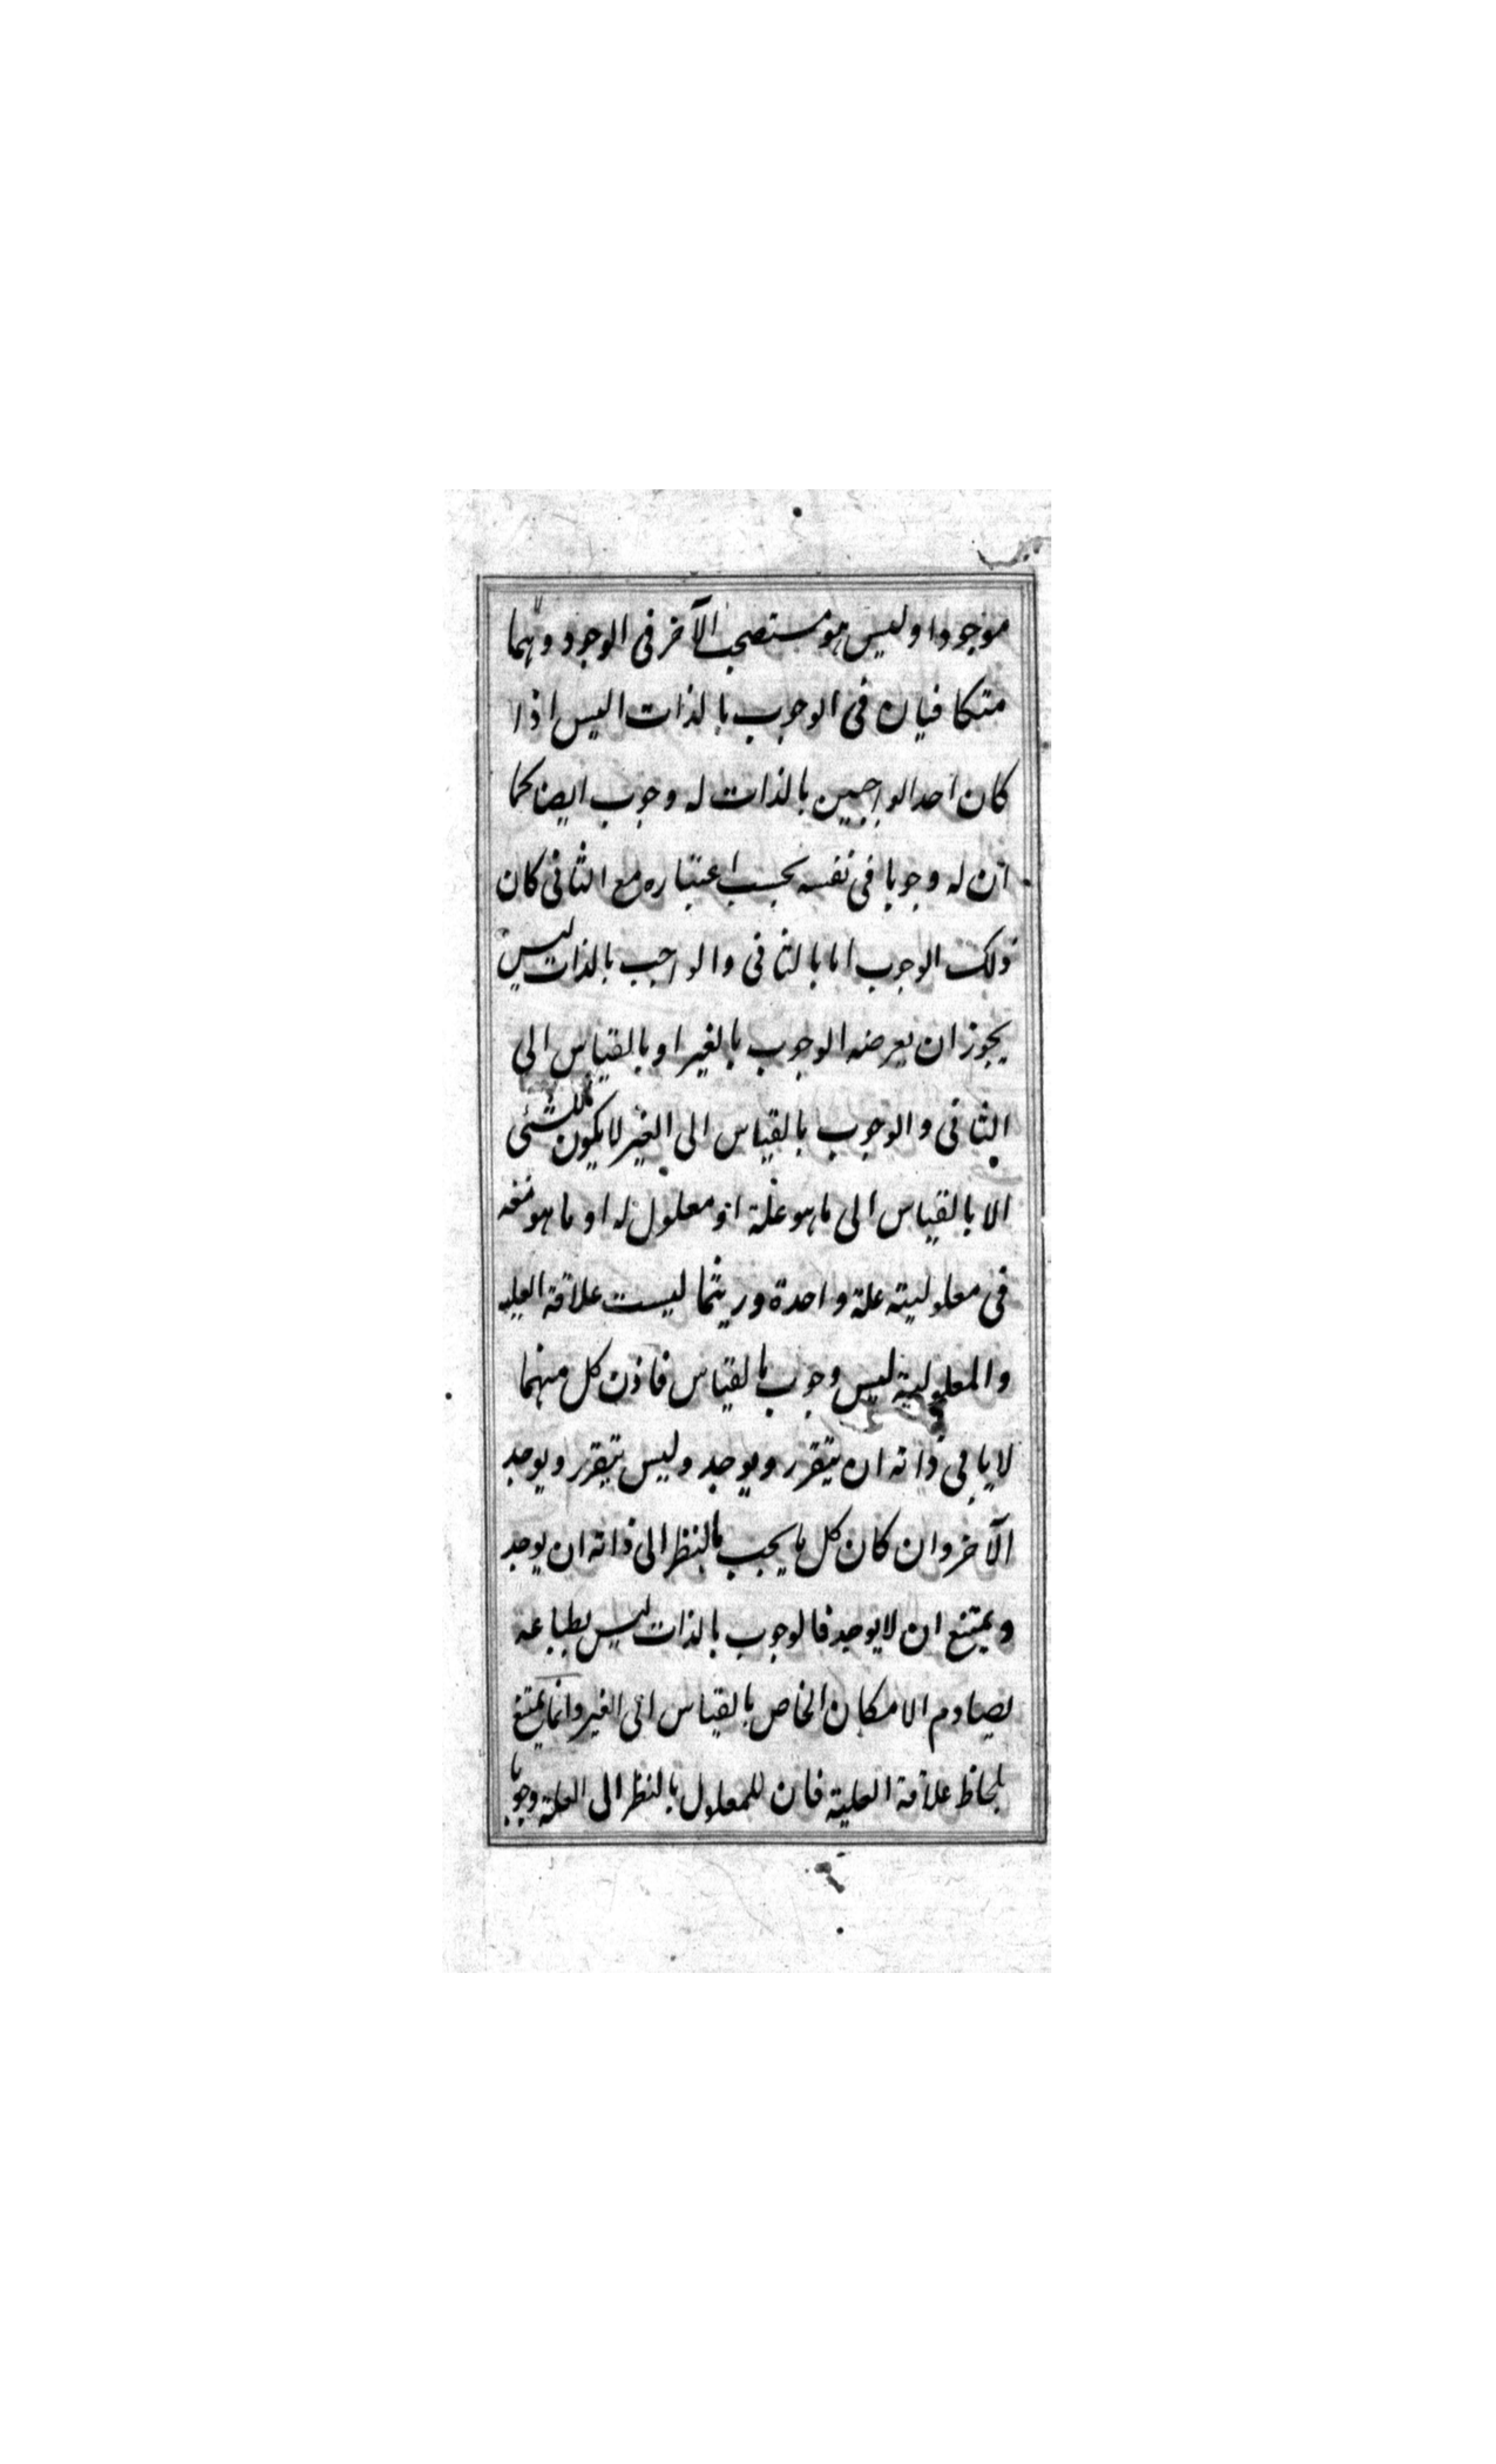 موجودا وليس هو مستصحب الآخر فى الوجود وهما
متكافيان فى الوجوب بالذات اليس اذا
كان احد الواجبين بالذات له وجوب ايضا كما
ان له وجوبا فى نفسه بحسب اعتباره مع الثانى كان
ذلك الوجوب اما بالثانى والواجب بالذات ليس
يجوز ان يعرضه الوجوب بالغير او بالقياس الى
الثانى والوجوب بالقياس الى الغير لا يكون للشئ
الا بالقياس الى ما هو علة او معلول له او ما هو معه
فى معلولية علة واحدة وريثما ليست علاقة العلية
والمعلولية ليس وجوب بالقياس فاذن كل منهما
لا يابى ذاته ان يتقرر ويوجد وليس يتقرر ويوجد
الآخر وان كان كل ما يجب بالنظر الى ذاته ان يوجد
ويمتنع ان لا يوجد فالوجوب بالذات ليس بطباعه
يصادم الامكان الخاص بالقياس الى الغير وانما يمتنع
بلحاظ علاقة العلية فان للمعلول بالنظر الى العلة وجوبا